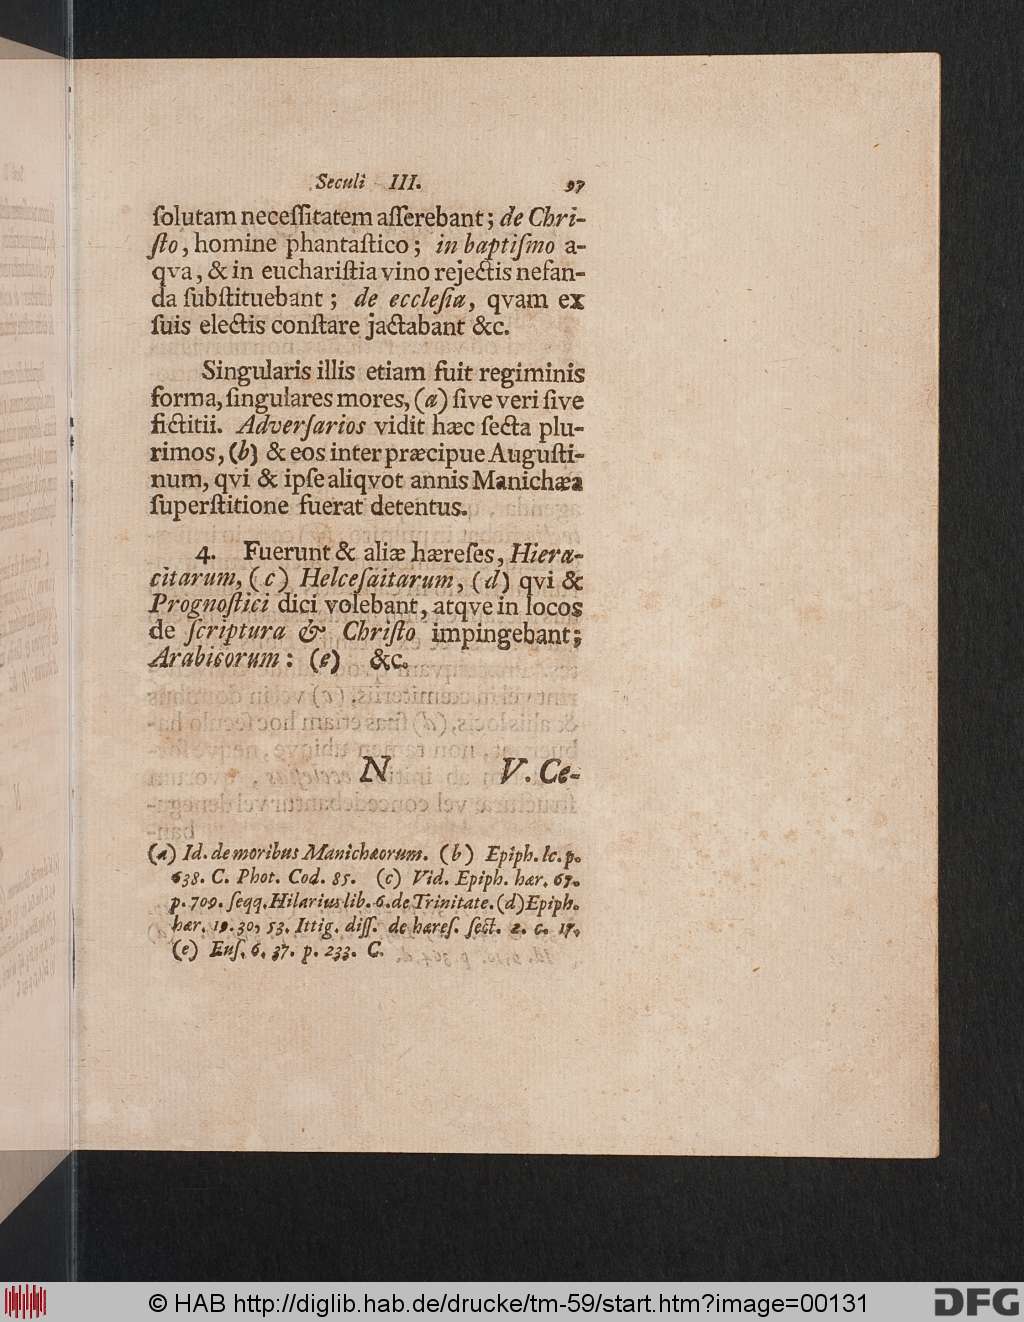 Seculi III. 97
ſolutam neceſſitatem aſſerebant; de Chri-
ſto, homine phantaſtico; in baptiſmo a-
qva, & in euchariſtia vino rejectis nefan-
da ſubſtituebant; de eccleſia, qvam ex
ſuis electis conſtare jactabant &c.
Singularis illis etiam fuit regiminis
forma, ſingulares mores, (a) ſive veri ſive
fictitii. Adverſarios vidit hæc ſecta plu-
rimos, (b) & eos inter præcipue Auguſti-
num, qvi & ipſe aliqvot annis Manichæa
ſuperſtitione fuerat detentus.
4. Fuerunt & aliæ hæreſes, Hiera-
citarum, (c) Helceſaitarum, (d) qvi &
Prognoſtici dici volebant, atqve in locos
de ſcriptura & Chriſto impingebant;
Arabicorum: (e) &c.
N V. Ce-
(a) Id. de moribus Manichæorum. (b) Epiph. lc. p.
638. C. Phot. Cod. 85. (c) Vid. Epiph. hær. 67.
p. 709. ſeqq. Hilarius lib. 6. de Trinitate. (d) Epiph.
hær. 19. 30, 53. Ittig. diſſ. de hæreſ. ſect. 2. c. 17.
(e) Euſ. 6. 37. p. 233. C.
© HAB http://diglib.hab.de/drucke/tm-59/start.htm?image=00131
DFG